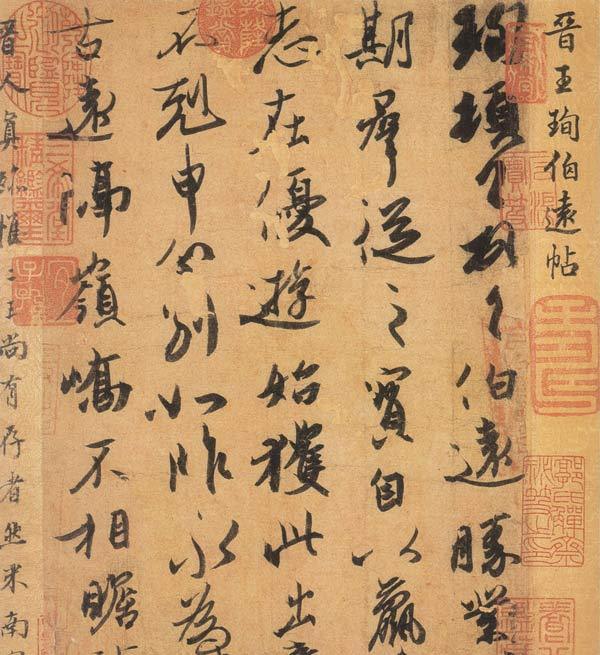 晉王珣伯遠帖
珣頓首頓首伯遠勝業
期羣從之寶自以羸
志在優遊始獲此出意
不剋申分別如昨永為
古遠隔嶺嶠不相瞻
晉人真跡惟二王尚有存者然米南